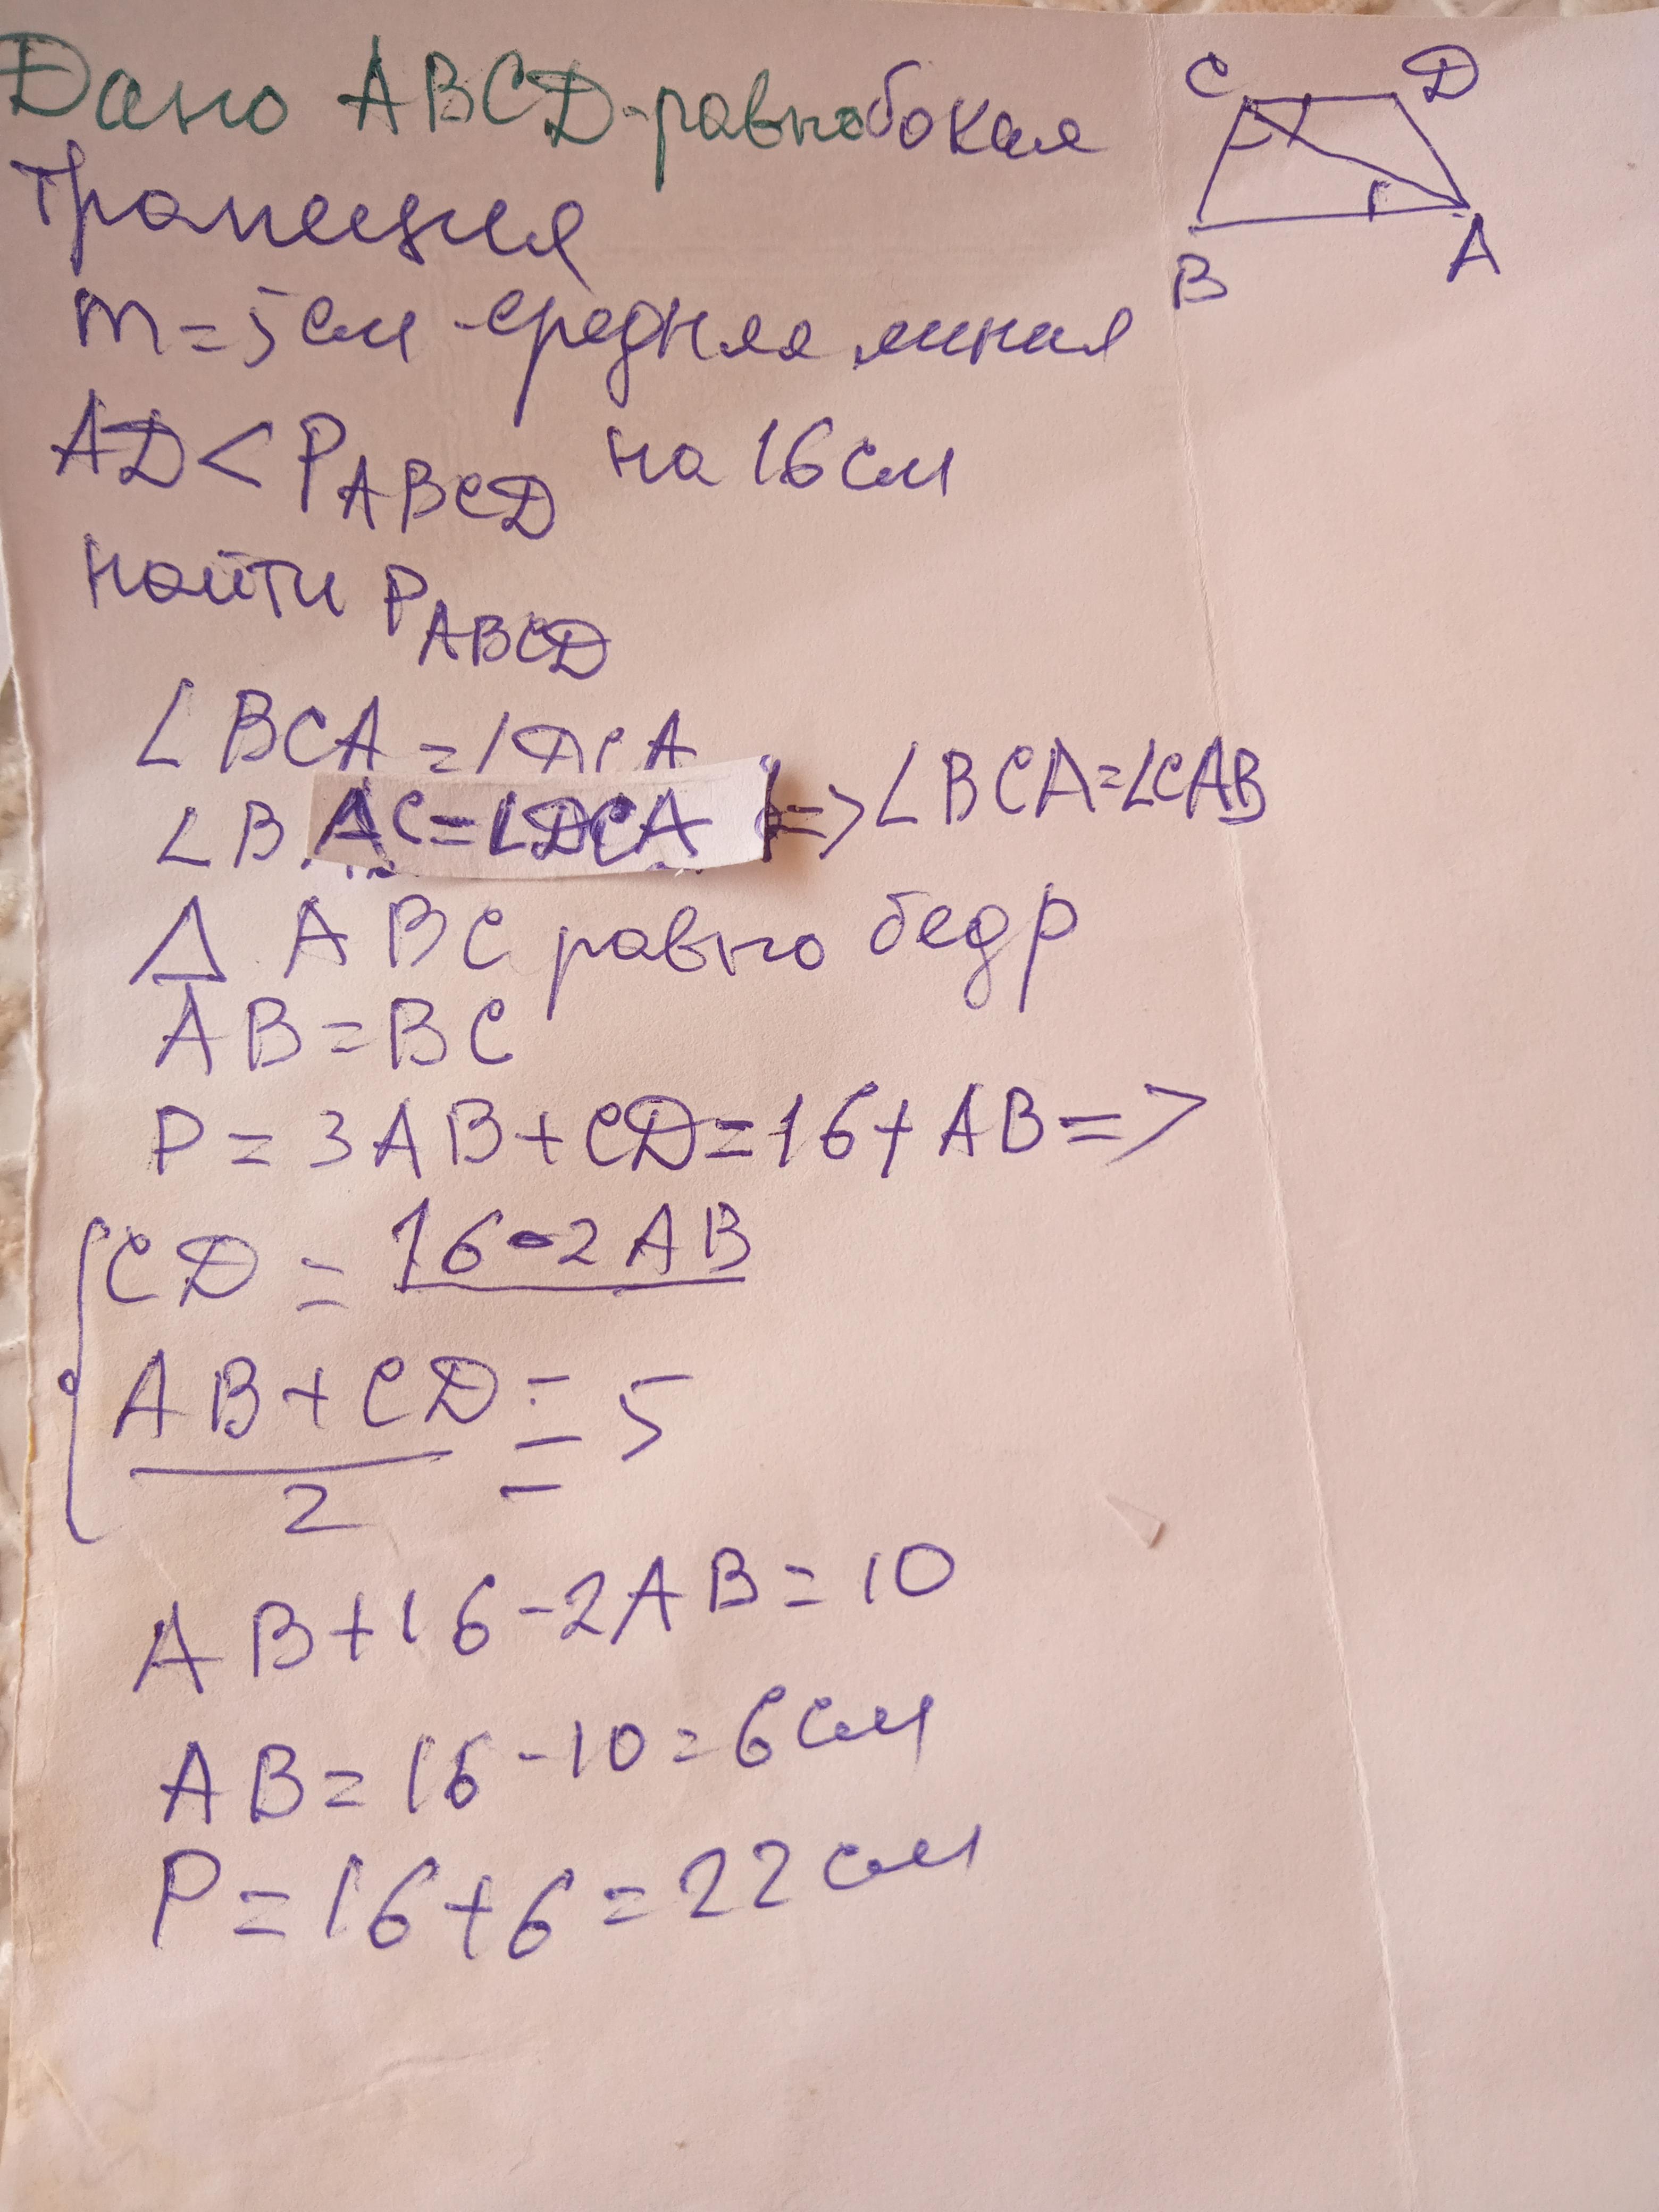 Дано ABCD-равнобокая
трапеция
m=5см-средняя линия
AD<P_ABCD на 16см
найти P_ABCD
∠BCA=∠DCA
∠BAC=∠DCA }=>∠BCA=∠CAB
△ ABC равнобедр
AB=BC
P=3AB+CD=16+AB=>
CD=16-2AB
(AB+CD)/2=5
AB+16-2AB=10
AB=16-10=6см
P=16+6=22см
C D
B A